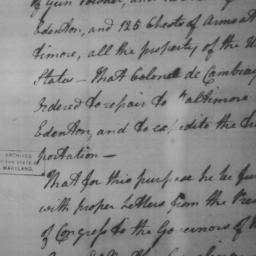 of Gun Powder, and
Edenton, and 125 Chests of Arms at
timore, all the property of the U
States — That Colonel de Cambray
Ordered to repair to Baltimore
Edenton, and to expedite the Tra
portation —
That for this purpose he be fur
with proper Letters from the Pres
of Congress to the Governors of
ARCHIVES
OF THE STATE OF
MARYLAND.